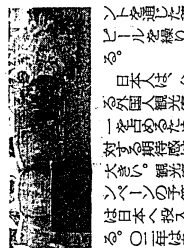 ントを通じた
ピールを繰り
る。
日本人は、
る外国人観光
一を占めるだけ
対する期待感は
大きい。観光
ンペーンの予
は日本へ投入
る。〇二年は